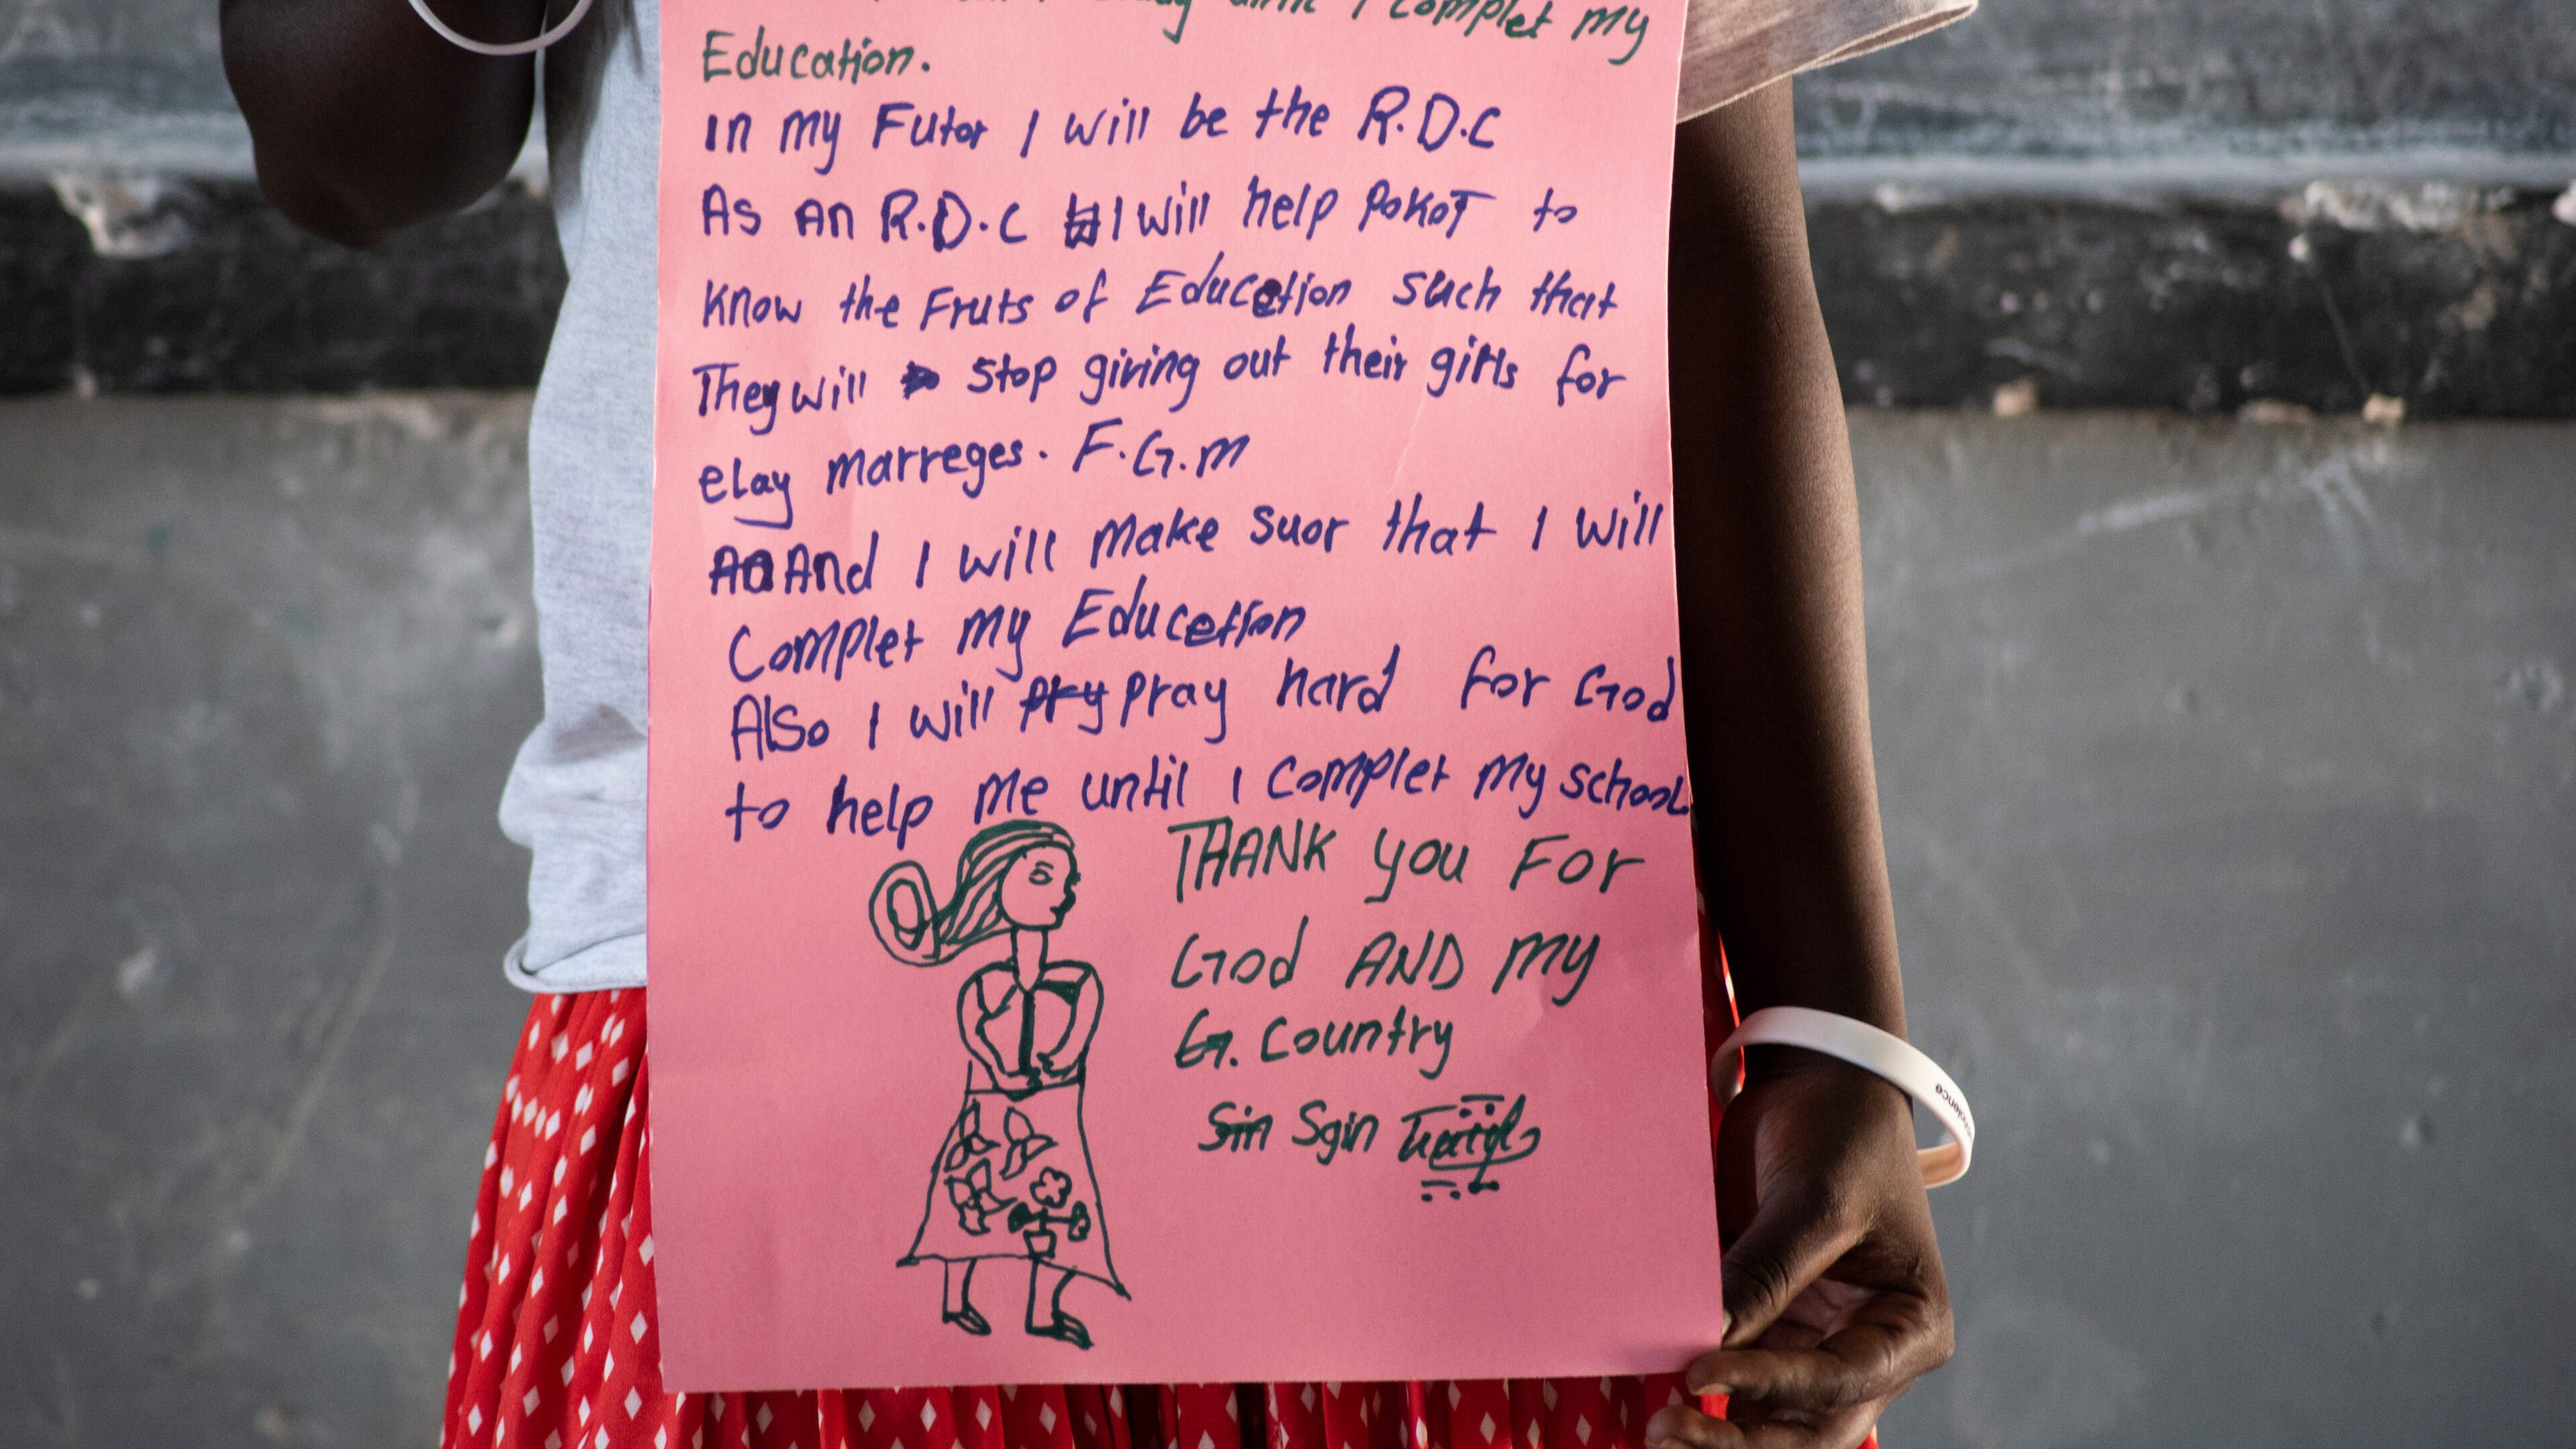 I complet my
Education.
In my Futor I will be the R.D.C
As an R.D.C I will help Pokot to
know the Fruts of Education such that
They will stop giving out their girls for
elay marreges. F.G.M
And I will make suor that I will
Complet my Education
Also I will pry pray hard for God
to help me until I complet my school
THANK you For
God AND my
G. Country
Sin Sgin